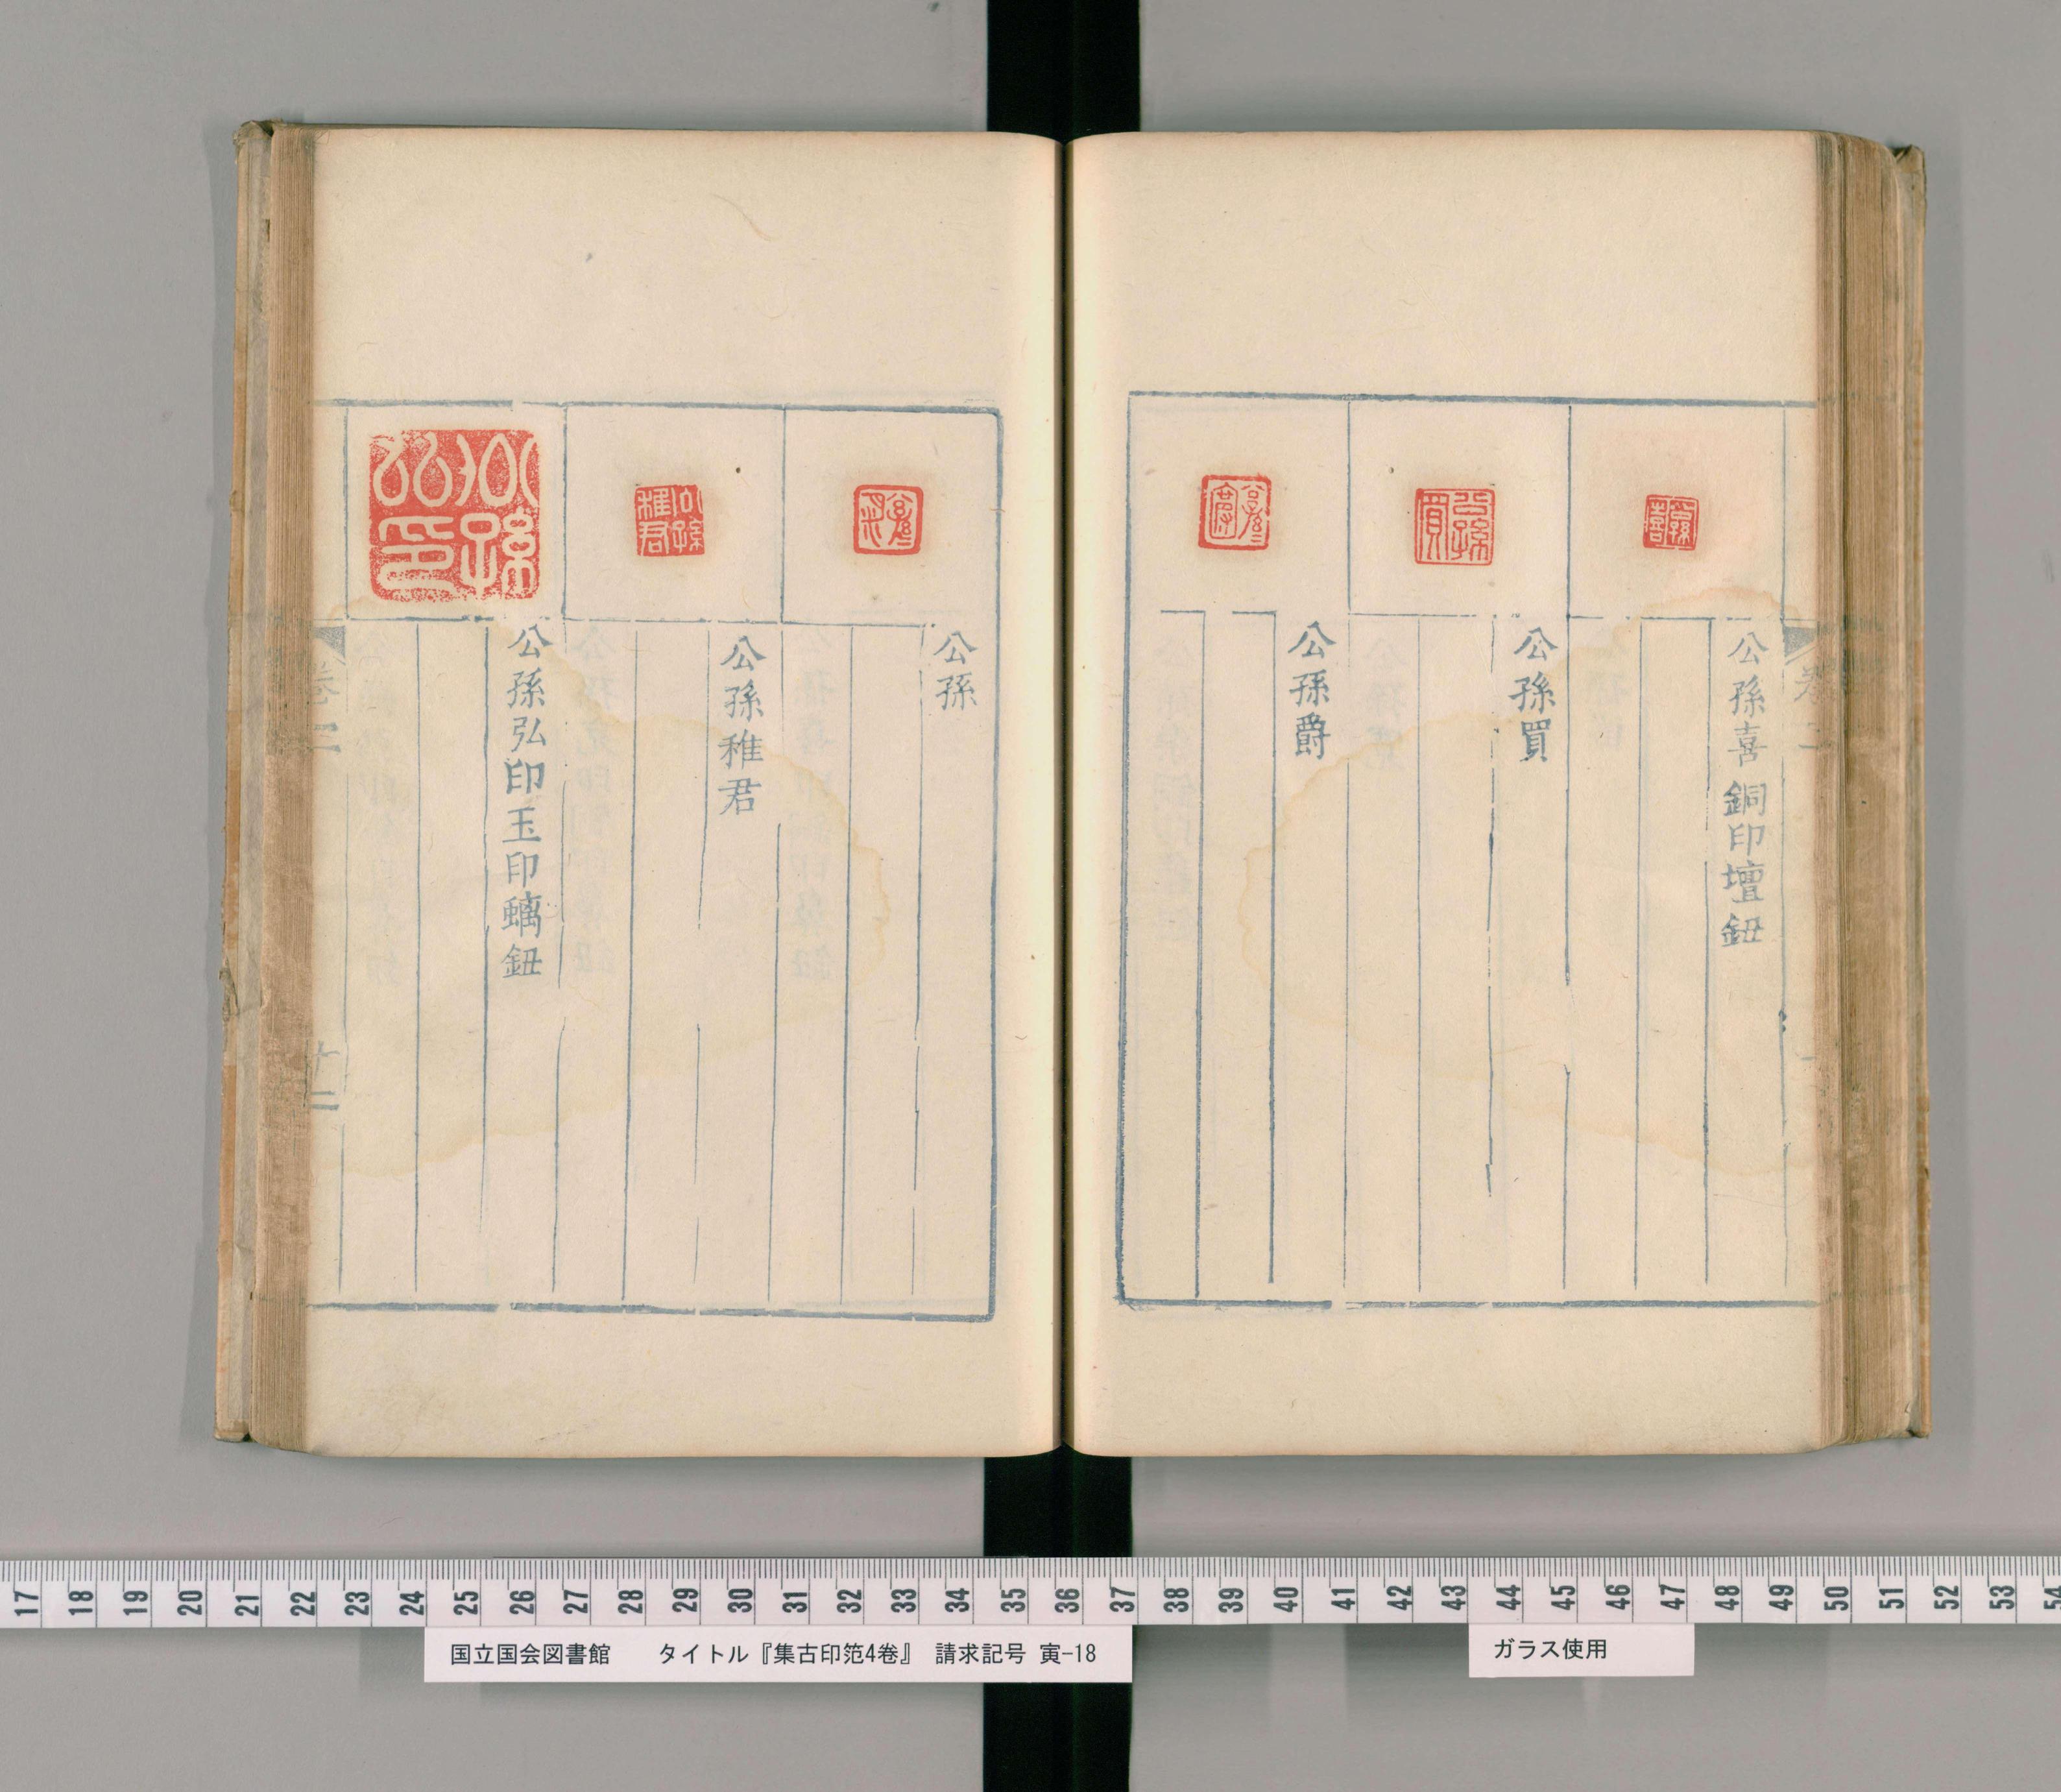 公孫喜銅印壇鈕
公孫買
公孫爵
公孫
公孫稚君
公孫弘印玉印螭鈕
卷二
十二
17 18 19 20 21 22 23 24 25 26 27 28 29 30 31 32 33 34 35 36 37 38 39 40 41 42 43 44 45 46 47 48 49 50 51 52 53 54
国立国会図書館 タイトル『集古印范4巻』 請求記号 寅-18
ガラス使用